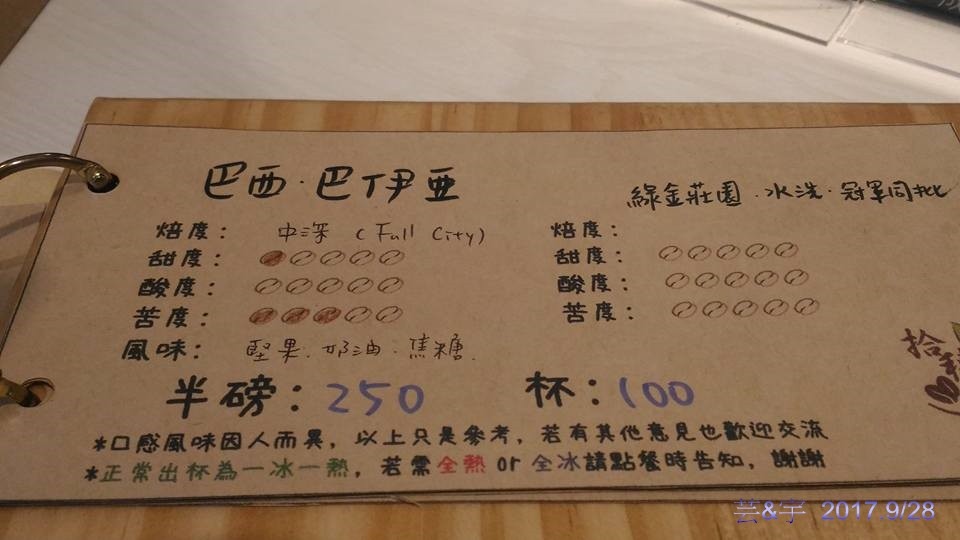 巴西·巴伊亞 綠金莊園·水洗·冠軍同批
焙度： 中深 (Full City) 焙度：
甜度： 甜度：
酸度： 酸度：
苦度： 苦度：
風味： 堅果.奶油.焦糖.
拾
半磅：250 杯：100
*口感風味因人而異，以上只是參考，若有其他意見也歡迎交流
*正常出杯為一冰一熱，若需全熱 or 全冰請點餐時告知，謝謝
芸&宇 2017.9/28